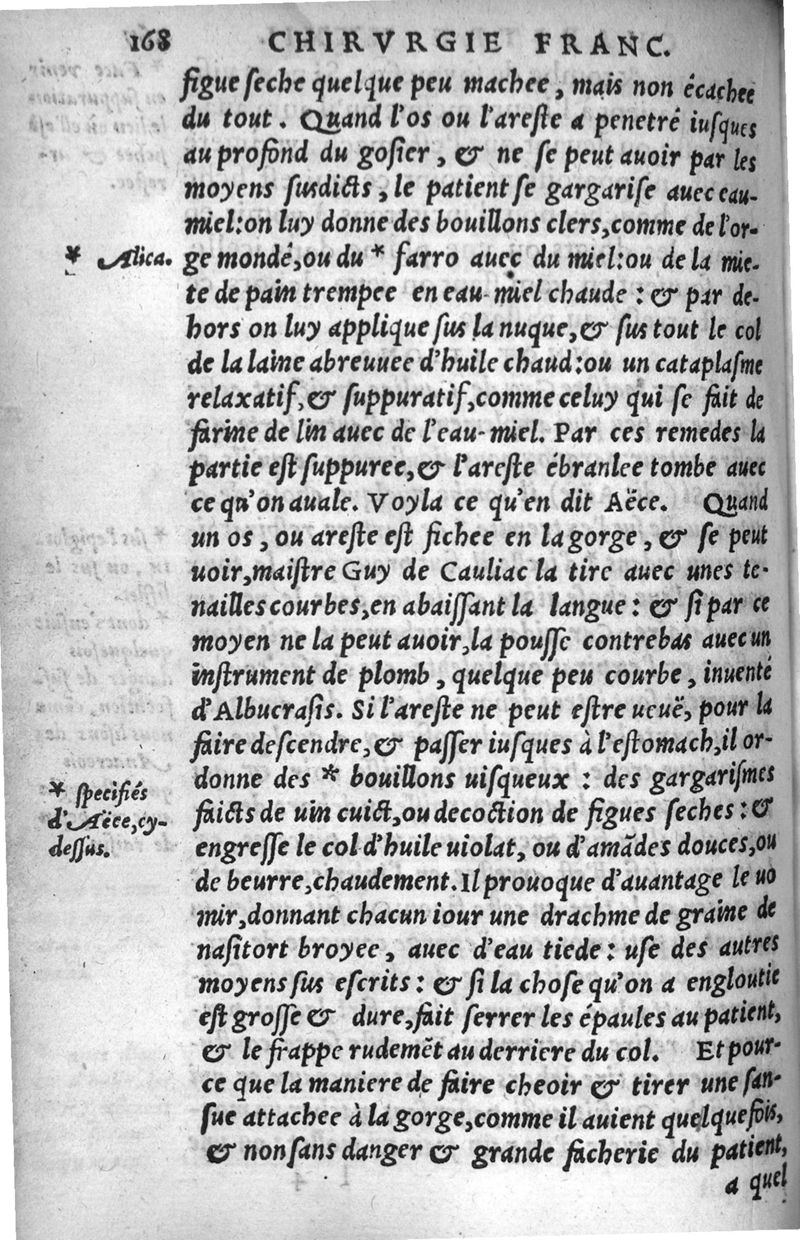 168 CHIRVRGIE FRANC.
figue seche quelque peu machee, mais non écachee
du tout. Quand l'os ou l'areste a penetré iusques
au profond du gosier, & ne se peut auoir par les
moyens susdicts, le patient se gargarise auec eau-
miel: on luy donne des bouillons clers, comme de l'or-
* Alica.
ge mondé, ou du * farro auec du miel: ou de la mie-
te de pain trempee en eau-miel chaude: & par de-
hors on luy applique sus la nuque, & sus tout le col
de la laine abreuuee d'huile chaud: ou un cataplasme
relaxatif, & suppuratif, comme celuy qui se fait de
farine de lin auec de l'eau-miel. Par ces remedes la
partie est suppuree, & l'areste ébranlee tombe auec
ce qu'on auale. Voyla ce qu'en dit Aëce. Quand
un os, ou areste est fichee en la gorge, & se peut
uoir, maistre Guy de Cauliac la tire auec unes te-
nailles courbes, en abaissant la langue: & si par ce
moyen ne la peut auoir, la pousse contrebas auec un
instrument de plomb, quelque peu courbe, inuenté
d'Albucrasis. Si l'areste ne peut estre ueuë, pour la
faire descendre, & passer iusques à l'estomach, il or-
donne des * bouillons uisqueux: des gargarismes
* specifiés
d'Aëce, cy-
dessus.
faicts de uin cuict, ou decoction de figues seches: &
engresse le col d'huile uiolat, ou d'amãdes douces, ou
de beurre, chaudement. Il prouoque d'auantage le uo
mir, donnant chacun iour une drachme de graine de
nasitort broyee, auec d'eau tiede: use des autres
moyens sus escrits: & si la chose qu'on a engloutie
est grosse & dure, fait serrer les épaules au patient,
& le frappe rudemẽt au derriere du col. Et pour-
ce que la maniere de faire cheoir & tirer une san-
sue attachee à la gorge, comme il auient quelquefois,
& non sans danger & grande facherie du patient,
a quel